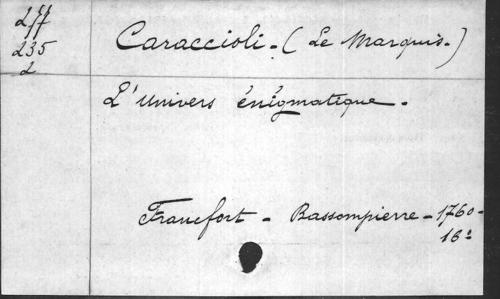 277
235
2
Caraccioli. (Le Marquis.)
L'Univers énigmatique.
Francfort - Bassompierre - 1760 -
16: